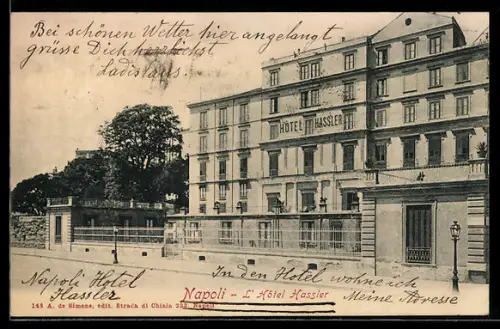 Bei schönen Wetter hier angelangt
grüsse Dich herzlichst
Ladislaus.
HOTEL HASSLER
Napoli Hotel
Hassler
In den Hotel wohne ich
Meine Adresse
Napoli - L'Hôtel Hassler
148 A. de Simone, edit. Strada di Chiaia 252, Napoli